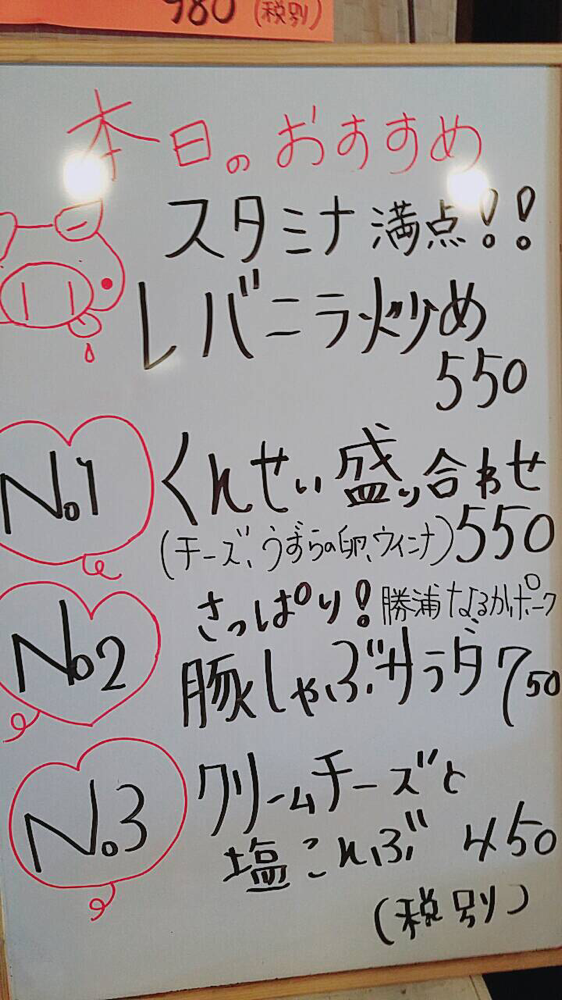 980(税別)
本日のおすすめ
スタミナ満点!!
レバニラ炒め
550
No.1
くんせい盛り合わせ
(チーズ、うずらの卵、ウィンナ)550
No.2
さっぱり!勝浦なるかポーク
豚しゃぶサラダ750
No.3
クリームチーズと
塩こんぶ 450
(税別)